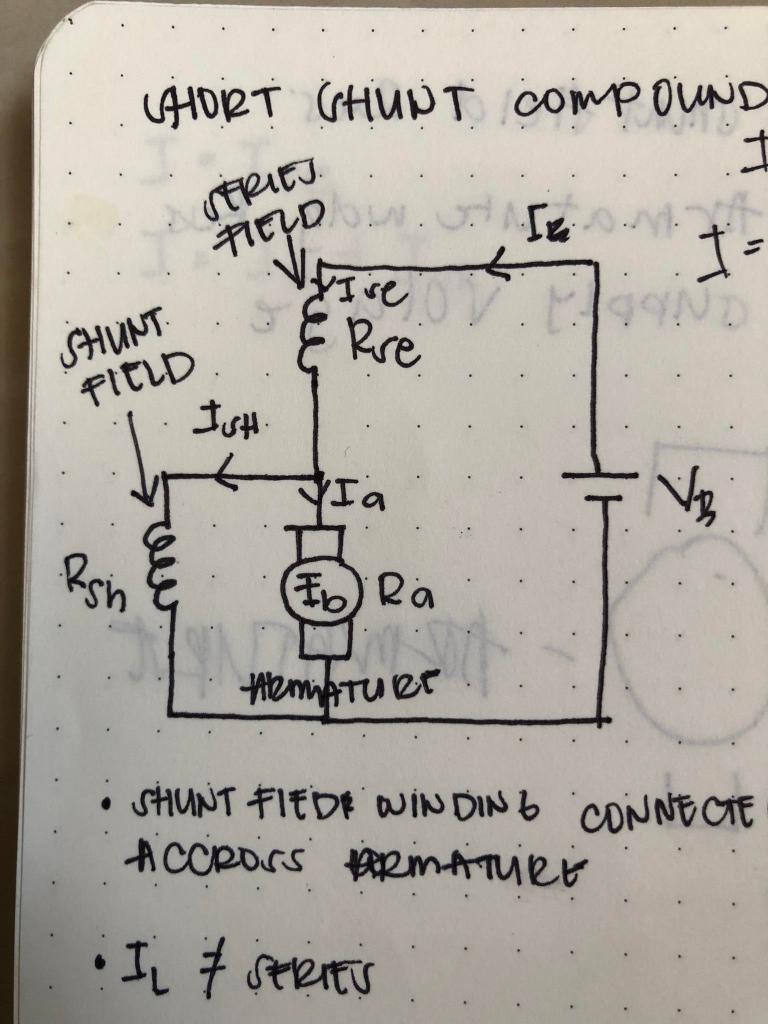 SHORT SHUNT COMPOUND
I
SERIES
FIELD
I =
Ise
Rse
SHUNT
FIELD
ISH
Ia
VB
Rsh
Ra
ARMATURE
• SHUNT FIED WINDING CONNECTE
ACCROSS ARMATURE
• IL ≠ SERIES